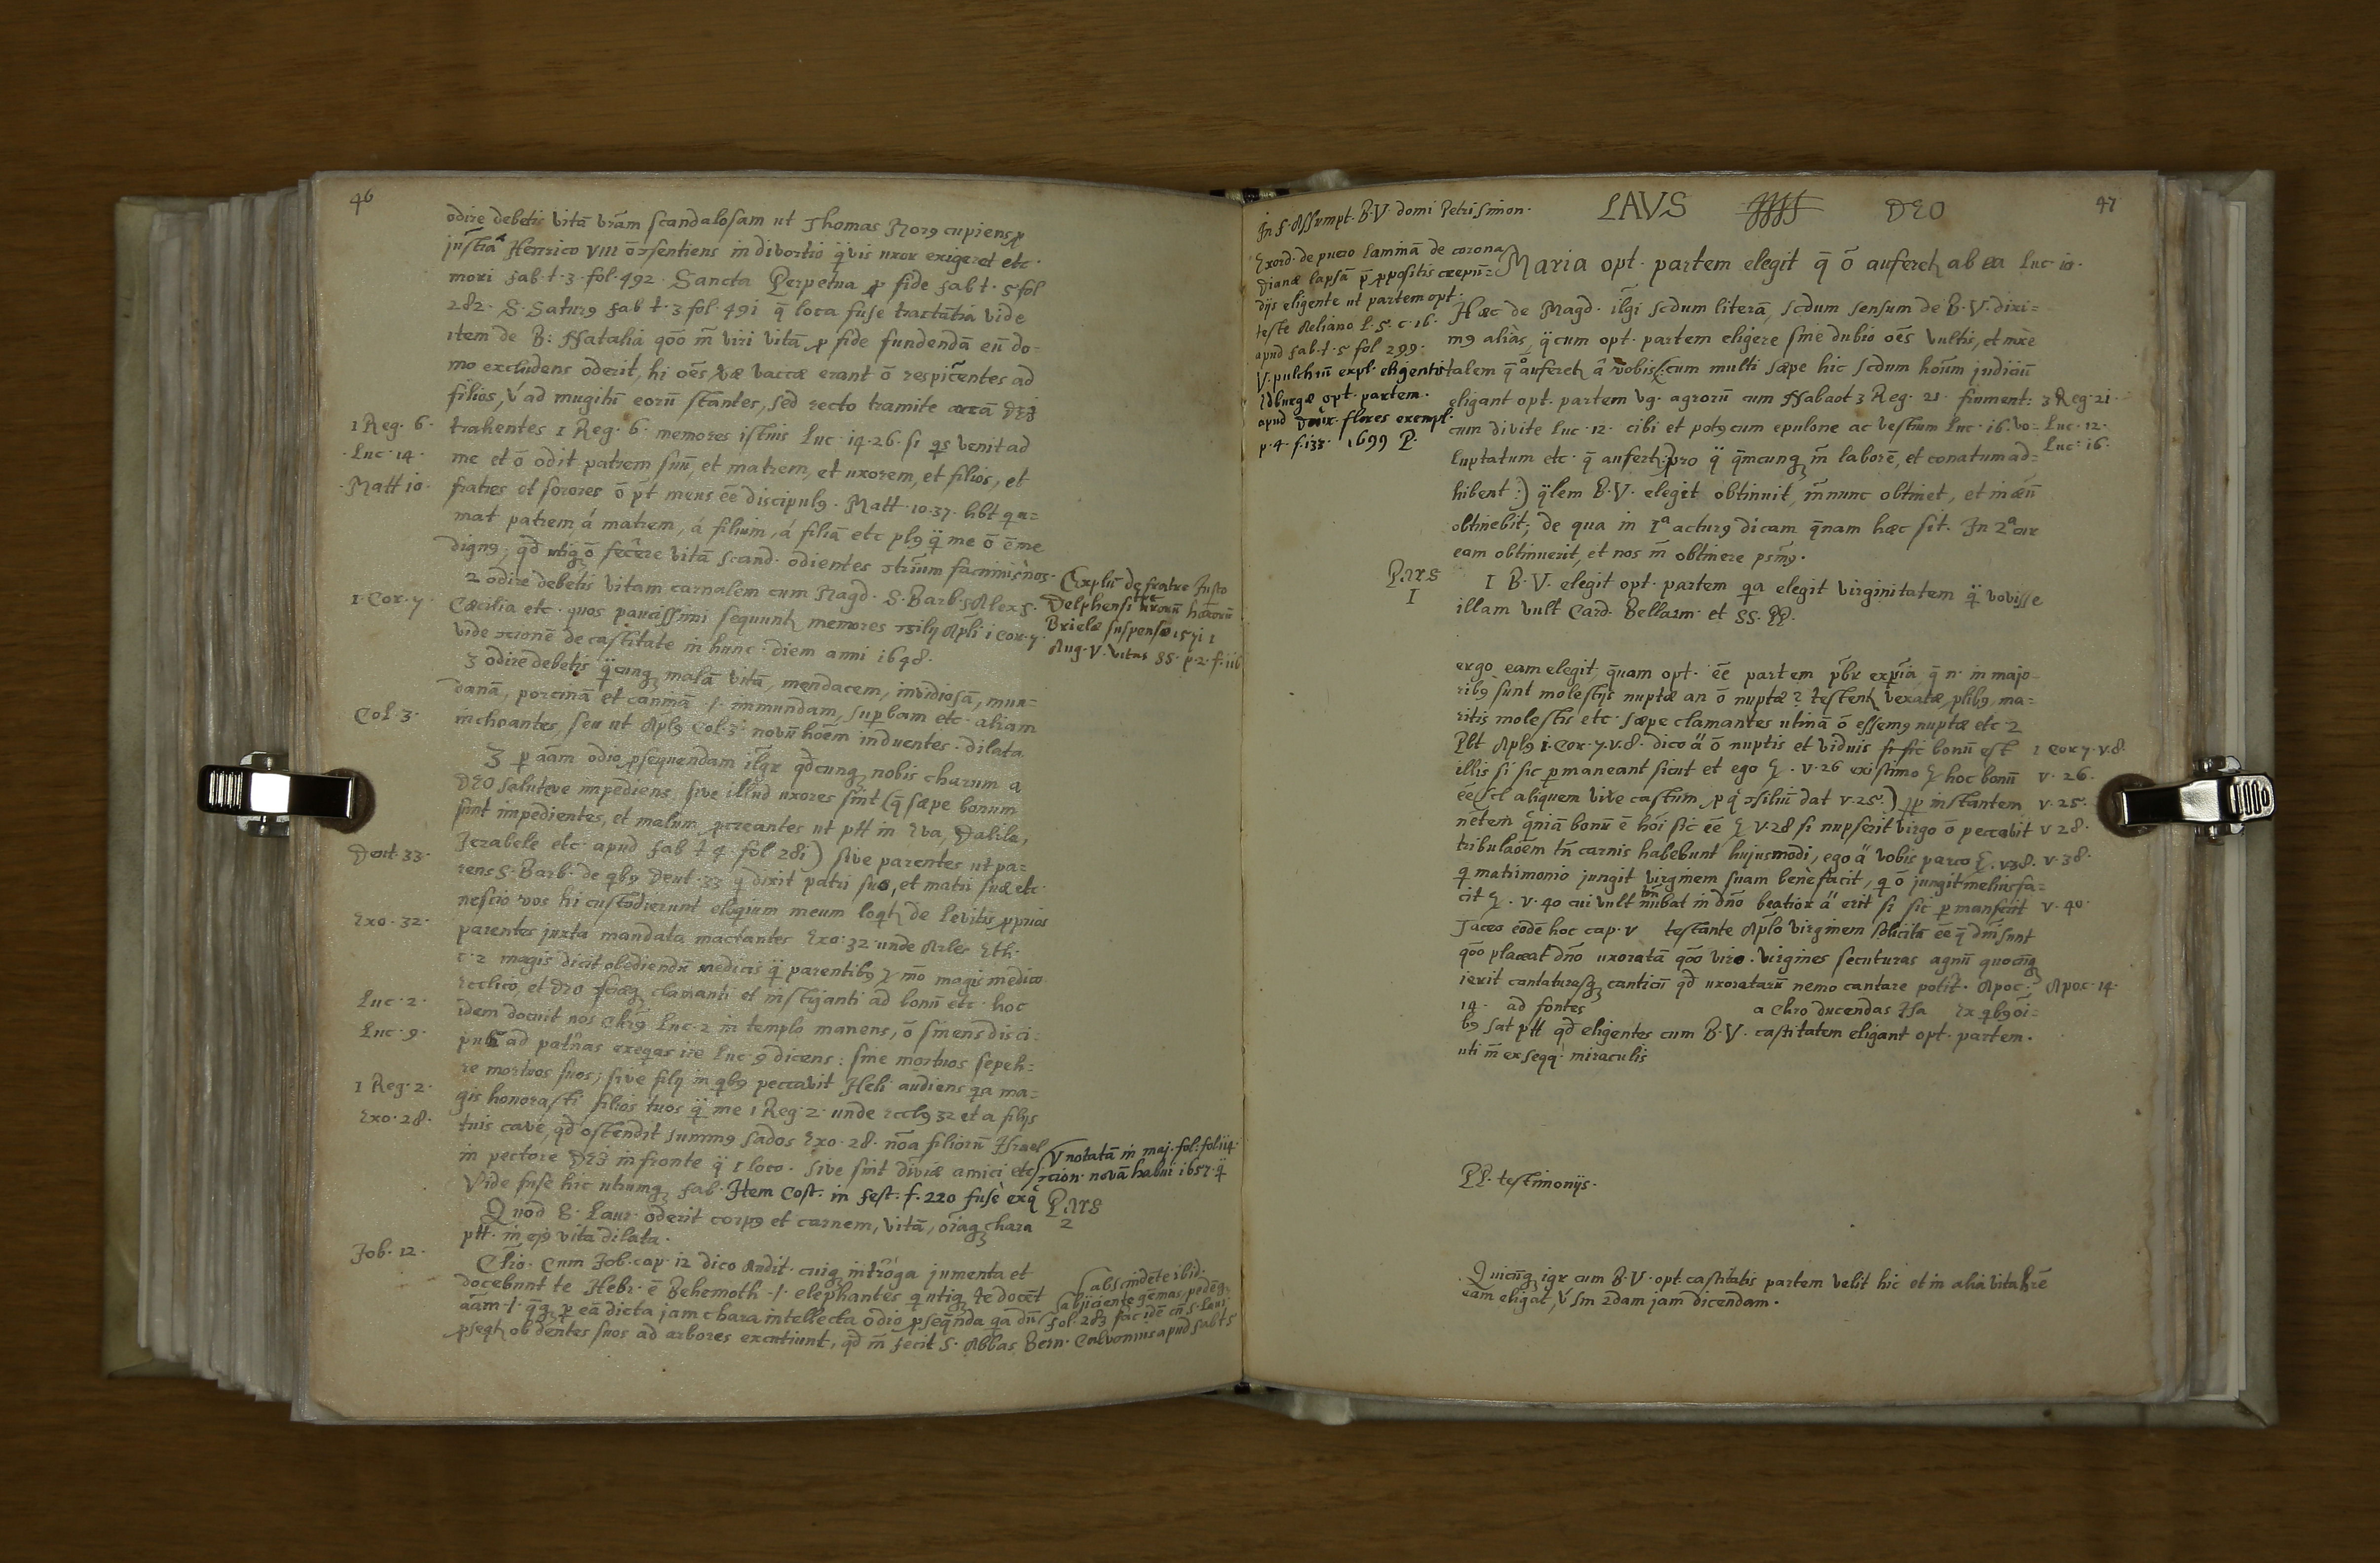 46
odire debetis vitā vrām scandalosam ut Thomas Morꝯ cupiens ꝓ
justiā Henrico VIII ō ↄsentiens in divortio q̄vis uxor exigeret etc.
mori fab. t. 3. fol. 492. Sancta Perpetua ꝓ fide fab t. 5 fol
282. S. Saturꝯ fab t. 3 fol. 491 q̄ loca fuse tractātia vide
item de B: Natalia qōo m̄ viri vitā ꝓ fide fundendā eū do=
mo excludens oderit, hi oēs væ vaccæ erant ō respiciētes ad
filios, v́ ad mugitū eorū stantes, sed recto tramite arcā DEJ
1 Reg. 6. trahentes 1 Reg. 6. memores istius Luc. 14. 26. si qs venit ad
Luc. 14. me et ō odit patrem suū, et matrem, et uxorem, et filios, et
Matt 10. fratres et sorores ō pt̄ meus ēē discipulꝯ. Matt. 10. 37. hbt q a=
mat patrem á matrem, á filium, á filiā etc plꝯ q̄ me ō ē me
dignꝯ; qd̄ utiqꝫ ō fecēre vitā scand. odientes
2 odire debetis vitam carnalem cum Magd. S. Barb. S Alex S.
1. Cor. 7. Cæcilia etc. quos paucissimi sequunt memores ↄsilij Apli 1 Cor. 7.
vide ↄcionē de castitate in hunc diem anni 1648.
Explū de fratre Justo
Delphensi
Brielæ suspensæ 1571 1
Aug. V. Vitas SS. p. 2. f. 116
3 odire debetis q̄cunqꝫ malā vitā, mendacem, invidiosā, mun=
danā, porcinā et caninā .|. immundam, superbam etc. aliam
Col. 3. inchoantes, seu ut Aplꝯ Col. 3. novū hōēm induentes. dilata
3 p āām odio ꝓsequendam itlgr qd̄cunqꝫ nobis charum a
DEO saluteve impediens; sive illud uxores sint (q̄ sæpe bonum
sint impedientes, et malum ꝓcreantes ut ptt in Eva, Dalila,
Jezabele etc. apud fab t 4. fol 281) sive parentes ut pa=
Deut. 33. rens S. Barb. de qbꝯ Deut. 33 q dixit patri suo, et matri suæ etc.
nescio vos hi custodierunt eloqium meum loqt de Levitis ꝓprios
Exo. 32. parentes juxta mandata mactantes Exo. 32 unde Arler Eth.
c. 2 magis dicit obediendū medicis q̄ parentibꝯ mō magis medico
Ecclico, et DEO clamanti et instiganti ad bonū etc. hoc
Luc. 2. idem docuit nos Chrꝯ Luc. 2 in templo manens, ō sinens disci=
Luc. 9. pulū ad patrias exeqas ire Luc. 9 dicens: sine mortuos sepeli=
re mortuos suos; sive filij in qbꝯ peccavit Heli audiens qa ma=
1 Reg. 2. gis honorasti filios tuos q̄ me 1 Reg. 2. unde ecclꝯ 32 et a filijs
Exo. 28. tuis cave, qd̄ ostendit summꝯ sados Exo. 28. nōā filiorū Israel
in pectore DEJ in fronte q̄ 1 loco. sive sint divi æ amici etc
V notatā in maj. fol. foli 14.
ↄcion. novā habui 1657. q̄
Vide fusè hic ubiunqꝫ fab. Item Cost. in fest. f. 220 fusè exq̄
Quod S. Laur. oderit corpꝯ et carnem, vitā, oiāqꝫ chara
Pars
2
ptt. in ejꝯ vita dilata.
Job. 12. Clio. Cum Job. cap. 12 dico audit. cuiqꝫ intrōga jumenta et
docebunt te Hebr. ē Behemoth .|. elephantes q utiqꝫ te docēt
āām .|. q̄qꝫ p eā dicta jam chara intellecta odio ꝓseq̄nda qa dū
ꝓseqt ob dentes suos ad arbores excutiunt, qd̄ m̄ fecit S. Abbas Bern. Calvonius apud fab t 5
abscindēte ibid.
abjiciente gēmas, pedēqꝫ
fol. 283 fac idē cū S. Laur
47
LAVS DEO
In f. Assumpt. B. V. domi Petri Simon.
Exord. de puero laminā de corona
Dianæ lapsā p̄ ꝓpositis crepū=
dijs eligente ut partem opt.
teste Aeliano l. 5. c. 16.
apud fab. t. 5 fol 299.
V. pulchrū expl. eligentis
Idburgæ opt. partem.
apud Daur. flores exempl.
p. 4. f. 138. 1699 P.
Maria opt. partem elegit q̄ ō auferet ab ea Luc. 10.
Hæc de Magd. itlgi scdum literā, scdum sensum de B. V. dixi=
mꝯ alias, q̄cum opt. partem eligere sine dubio oēs vultis, et mxè
talem q̄ ō auferet â vobis (: cum multi sæpe hic scdum hoūm judiciū
eligant opt. partem vg. agrorū cum Nabaot 3 Reg. 21. frument: 3 Reg. 21.
cum divite Luc. 12. cibi et potꝯ cum epulone ac vestium Luc. 16. vo= Luc. 12.
luptatum etc. q̄ aufert: pro q̄ q̄mcunqꝫ m̄ laborē, et conatum ad= Luc. 16.
hibent :) q̄lem B. V. elegit obtinuit, m̄ nunc obtinet, et in æū
obtinebit; de qua in 1ᵃ acturꝯ dicam q̄nam hæc sit. In 2ᵃ cur
eam obtinuerit, et nos m̄ obtinere psmꝯ.
Pars
1
1 B. V. elegit opt. partem qa elegit virginitatem q̄ vovisse
illam vult Card. Bellarm. et SS. PP.
ergo eam elegit quam opt. ēē partem pbr expīa q̄ n. in majo=
ribꝯ sunt molestijs nuptæ an ō nuptæ? testent vexatæ plibꝯ, ma=
ritis molestis etc. sæpe clamantes utinā ō essemꝯ nuptæ etc 2
Pbt Aplꝯ 1. Cor. 7. v. 8. dico ā ō nuptis et viduis si sic bonū est 1 Cor 7. v. 8.
illis si sic pmaneant sicut et ego . v. 26 existimo hoc bonū v. 26.
ēē (scl aliquem vire castum, p q̄ ↄsiliū dat v. 25.) ꝓp instantem v. 25.
netem q̄niā bonū ē hōi sic ēē v. 28 si nupserit virgo ō peccabit v 28.
tribulaōēm tn̄ carnis habebunt hujusmōdi, ego ā vobis parco . v. 38. v. 38.
q matrimonio jungit virginem suam benè facit, q ō jungit melius fa=
cit . v. 40 cui vult nubat tm̄ in dn̄o beatior ā erit si sic pmanserit v. 40.
Taceo eōdē hoc cap. v testante Aplo virginem solicitā ēē q̄ dnī sunt
qōo placeat dn̄o uxoratā qōo viro. Virgines secuturas agnū quocūqꝫ
ierit cantaturasqꝫ canticū qd̄ uxoratarū nemo cantare potit. Apoc. Apoc. 14.
14. ad fontes a Chro ducendas Isa Ex qbꝯ oi=
bꝯ sat ptt qd̄ eligentes cum B. V. castitatem eligant opt. partem.
uti m̄ ex seqq. miraculis
PP. testimonijs.
Quicūqꝫ igr cum B. V. opt. castitatis partem velit hic et in alia vita hrē
eam eligat, v́ sm 2dam jam dicendam.